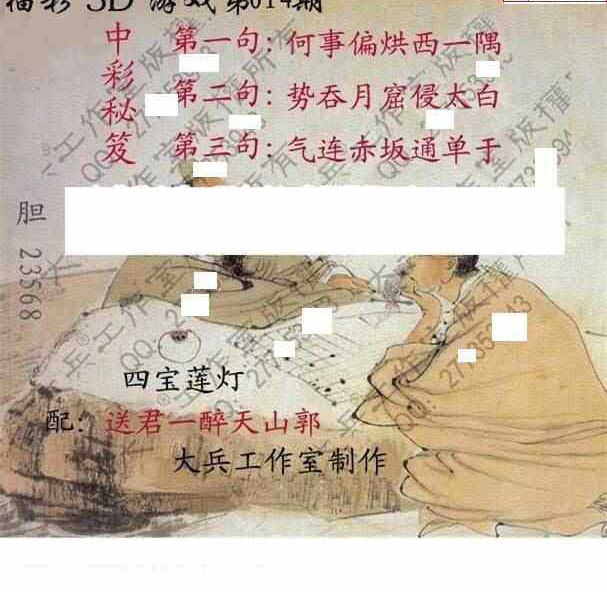 福彩 3D 游戏 第014期
中彩秘笈
第一句: 何事偏烘西一隅
第二句: 势吞月窟侵太白
第三句: 气连赤坂通单于
胆 23568
四宝莲灯
配: 送君一醉天山郭
大兵工作室制作